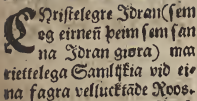 CHristelegre Idran (sem
og eirneñ þeim sem san
na Idran giøra) maa
riettelega Samlijkia vid ei⸗
na fagra vellucktãde Roos⸗